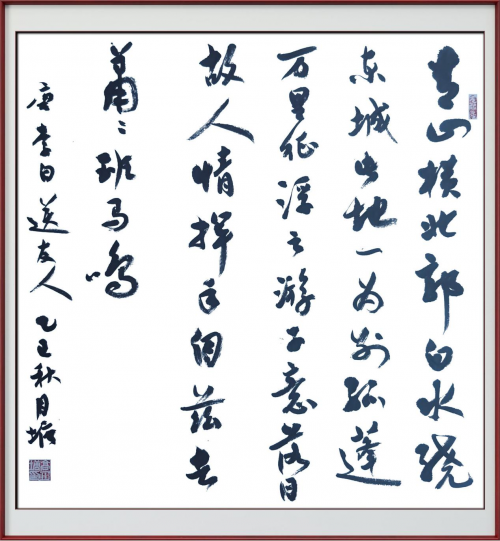 青山横北郭白水绕
东城此地一为别孤蓬
万里征浮云游子意落日
故人情挥手自兹去
萧〻班马鸣
唐李白送友人乙丑秋月